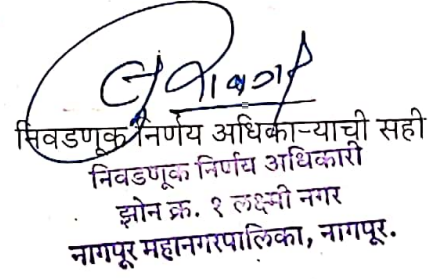 निवडणूक निर्णय अधिकाऱ्याची सही
निवडणूक निर्णय अधिकारी
झोन क्र. १ लक्ष्मी नगर
नागपूर महानगरपालिका, नागपूर.